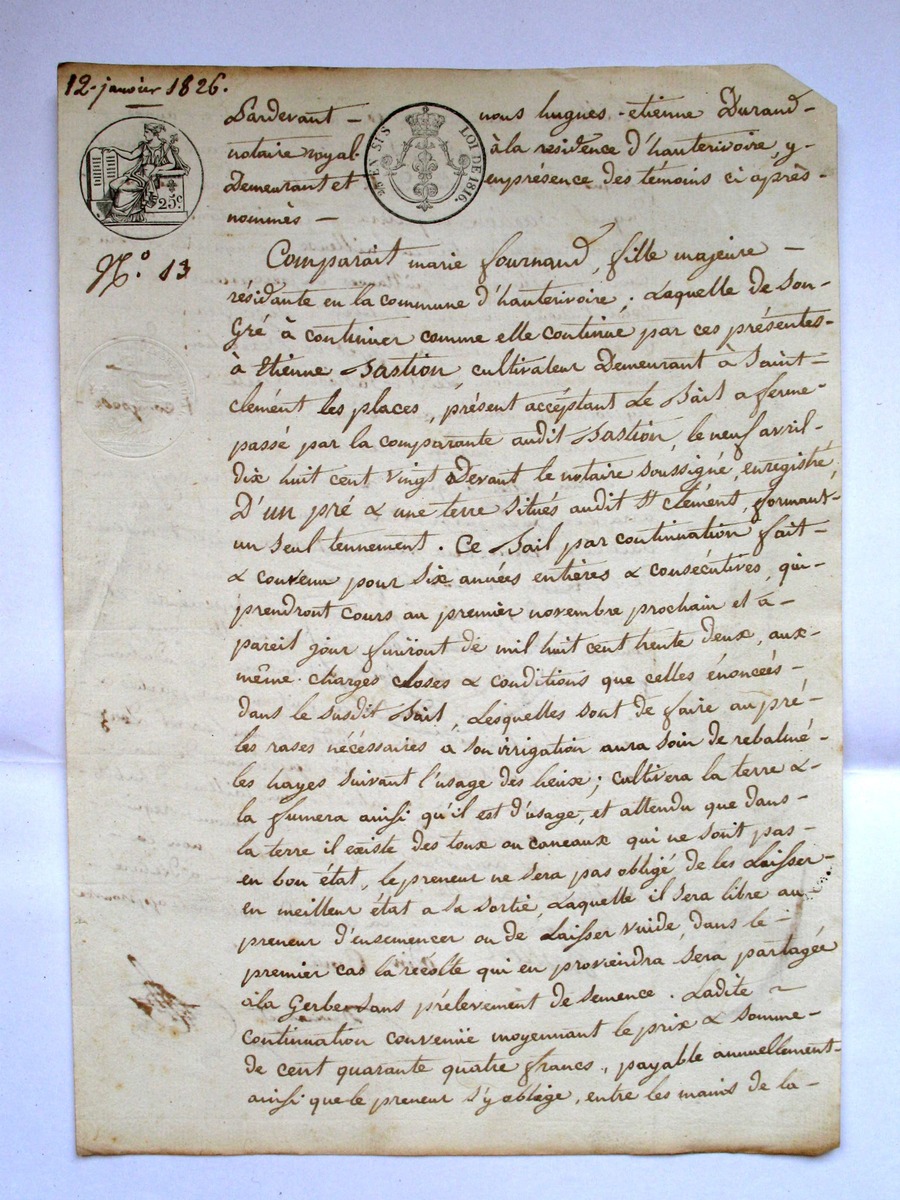 12. janvier 1826.
Pardevant — nous hugues - etienne Durand-
notaire royal à la residence d'hauterivoire, y-
Demeurant et en présence des témoins ci après-
nommés —
EN SUS
LOI DE 1816.
25c
N.° 13
Comparait marie fournand, fille majeure —
résidante en la commune d'hauterivoire; Laquelle de son-
Gré à continuer comme elle continue par ces présentes-
à Etienne Bastion, cultivateur Demeurant à Saint-
clément les places, présent accéptant Le Bail a ferme-
passé par la comparante audit Bastion, le neuf avril-
dix huit cent vingt Devant le notaire soussigné, enregistré,
D'un pré & une terre situés audit St clément, formant-
un seul tennement. Ce Bail par continuation fait-
& convenu pour six années entières & consécutives, qui-
prendront cours au premier novembre prochain et à-
pareil jour finiront de mil huit cent trente deux, aux-
même charges closes & conditions que celles énoncées-
dans le susdit Bail, Lesquelles sont de faire au pré-
les rases nécessaires à son irrigation aura soin de rebalmé-
les hayes suivant l'usage des lieux; cultivera la terre &-
la fumera ainsi qu'il est d'usage, et attendu que dans-
la terre il existe des toux ou caneaux qui ne sont pas-
en bon état, le preneur ne sera pas obligé de les Laisser-
en meilleur état a sa sortie, Laquelle il sera libre au
preneur d'ensemencer ou de Laisser vuide, dans le-
premier cas la récolte qui en proviendra sera partagée
à la Gerbe sans prélevement de semence. Ladite ~
Continuation convenüe moyennant le prix & somme-
de cent quarante quatre francs, payable annuellement-
ainsi que le preneur s'y oblige, entre les mains de la-